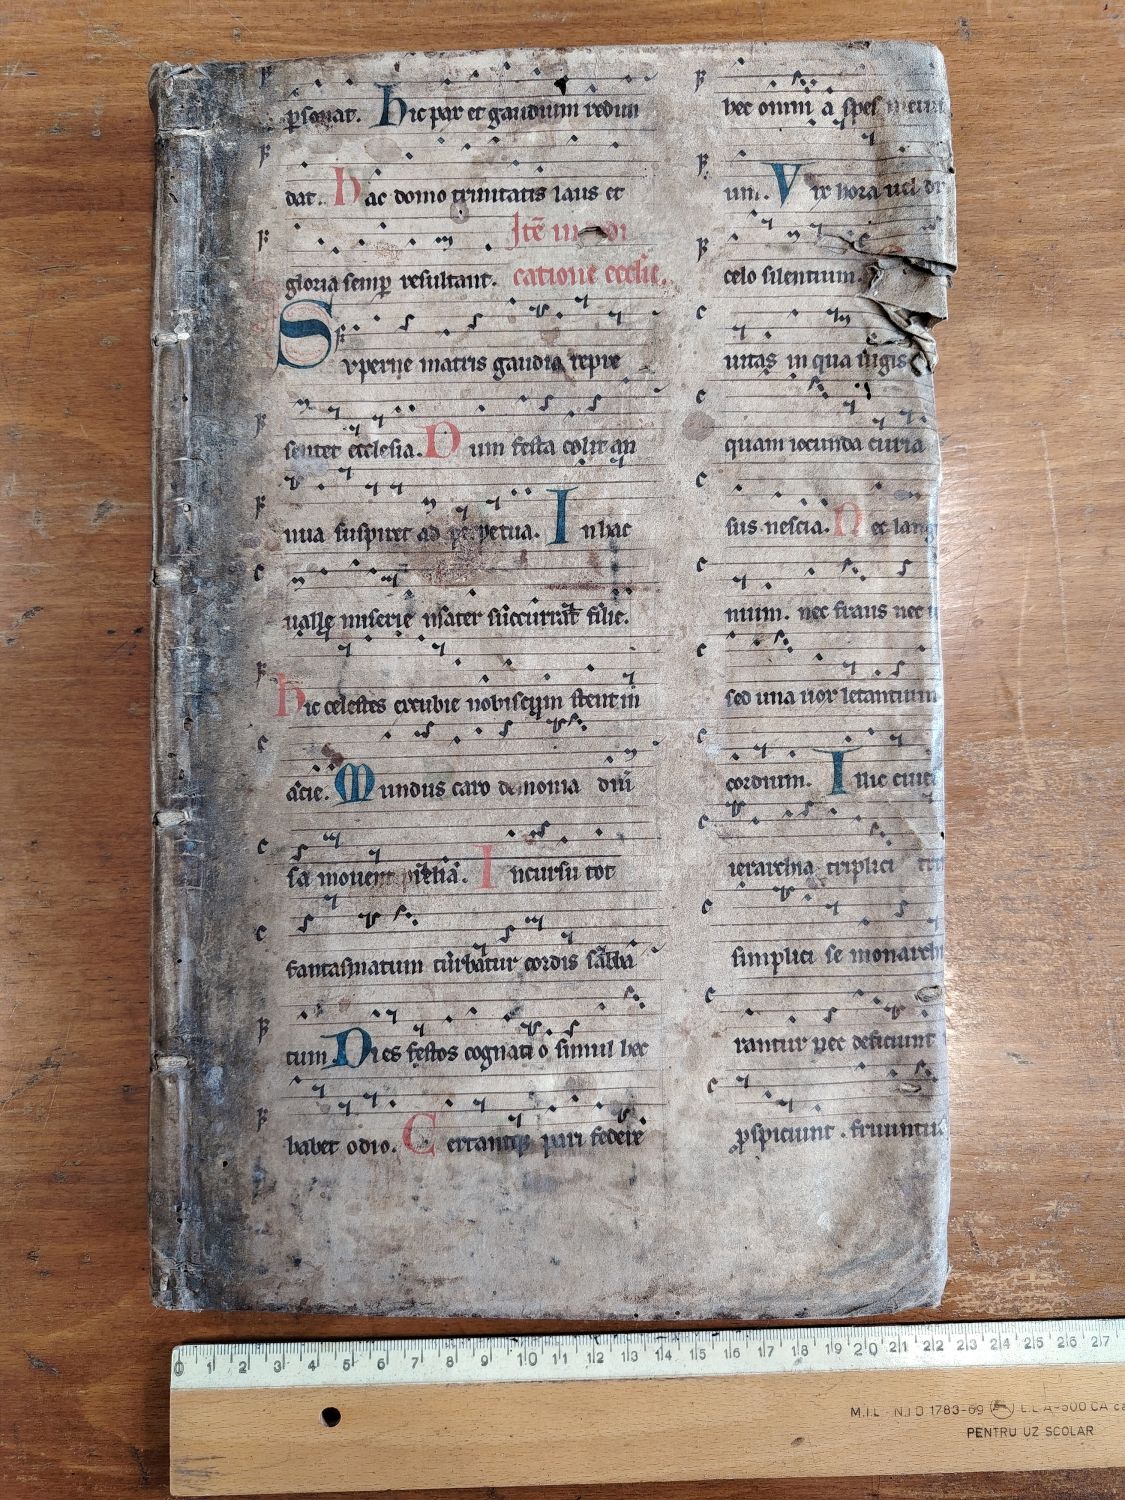 psonat. Hic pax et gaudium redun
dat. Hac domo trinitatis laus et
gloria semp resultant. Itē in
catione ecclīe.
Superne matris gaudia repre
sentet ecclesia. Dum festa colit an
nua suspiret ad perpetua. In hac
ualle miserie mater succurrat filie.
Hic celestes excubie nobiscum stent in
acie. Mundus caro demonia
mouent prelia. Incursu tot
fantasmatum turbatur cordis sabba
tum Dies festos cognatio simul hec
habet odio. Certantque pari federe
hec omnia spes
um. Vix hora uel
celo silentium.
uitas in qua iugis
quam iocunda curia
sus nescia. Nec lang
nium. nec fraus nec
sed una uox letantium
cordium. Illic ciuit
ierarchia triplici
simplici se monarchi
rantur nec deficiunt
pspiciunt. fruuntu
0 1 2 3 4 5 6 7 8 9 10 11 12 13 14 15 16 17 18 19 20 21 22 23 24 25 26 27
M.I.L - N.I.D 1783-69
PENTRU UZ SCOLAR